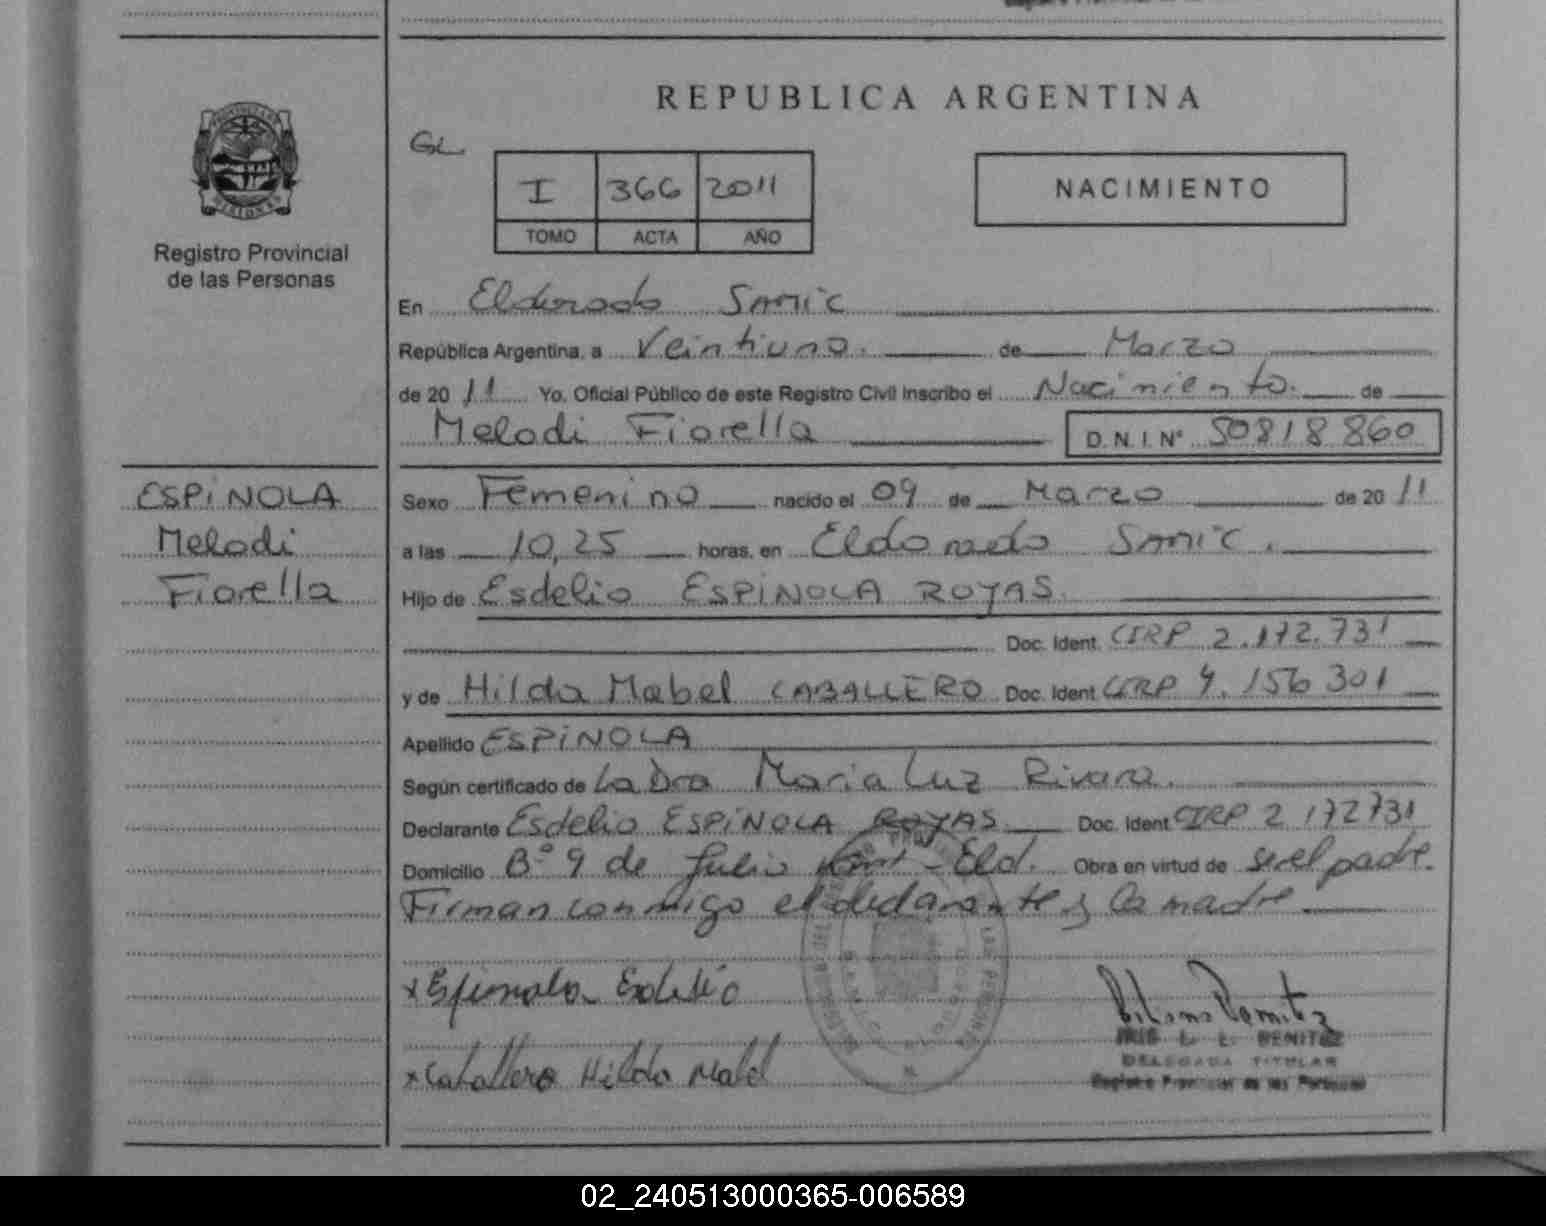 REPUBLICA ARGENTINA
GL
I 366 2011
TOMO ACTA AÑO
NACIMIENTO
Registro Provincial
de las Personas
En Eldorado Samic
República Argentina, a Veintiuno. de Marzo
de 2011 Yo. Oficial Público de este Registro Civil Inscribo el Nacimiento. de
Melodi Fiorella D.N.I. Nº 50818860
ESPiNOLA
Melodi
Fiorella
Sexo Femenino nacido el 09 de Marzo de 2011
a las 10,25 horas, en Eldorado Samic.
Hijo de Esdelio ESPiNOLA ROYAS.
Doc. Ident. CIRP 2.172.731
y de Hilda Mabel CABALLERO Doc. Ident. CIRP 4.156 301
Apellido ESPiNOLA
Según certificado de La Dra Maria Luz Rivara.
Declarante Esdelio ESPiNOLA ROYAS Doc. Ident CIRP 2 172731
Domicilio Bº 9 de Julio - Eld. Obra en virtud de ser el padre.
Firman conmigo el declarante y la madre
x Espinola Esdelio
x Caballero Hilda Mabel
IRIS L. L. BENITEZ
DELEGADA TITULAR
Registro Provincial de las Personas
02_240513000365-006589